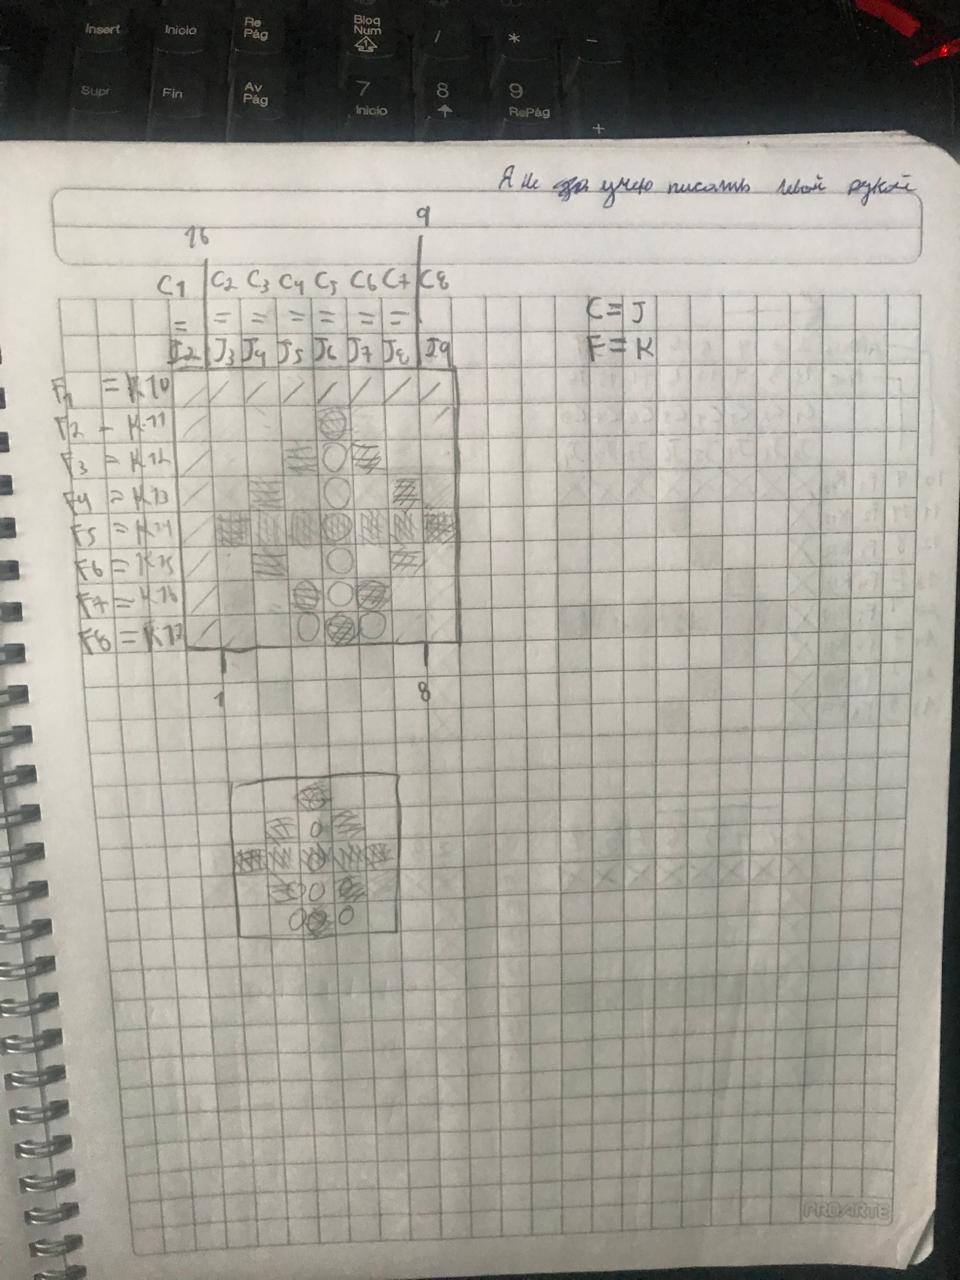 Insert Inicio Re Pág Bloq Num / * -
Supr Fin Av Pág 7 Inicio 8 9 RePág +
Я не умею писать левой рукой
16 9
C1 C2 C3 C4 C5 C6 C7 C8
= = = = = = =
J2 J3 J4 J5 J6 J7 J8 J9
C=J
F=K
F1 = K10
F2 - K11
F3 = K12
F4 = K13
F5 = K14
F6 = K15
F7 = K16
F8 = K17
1 8
PROARTE